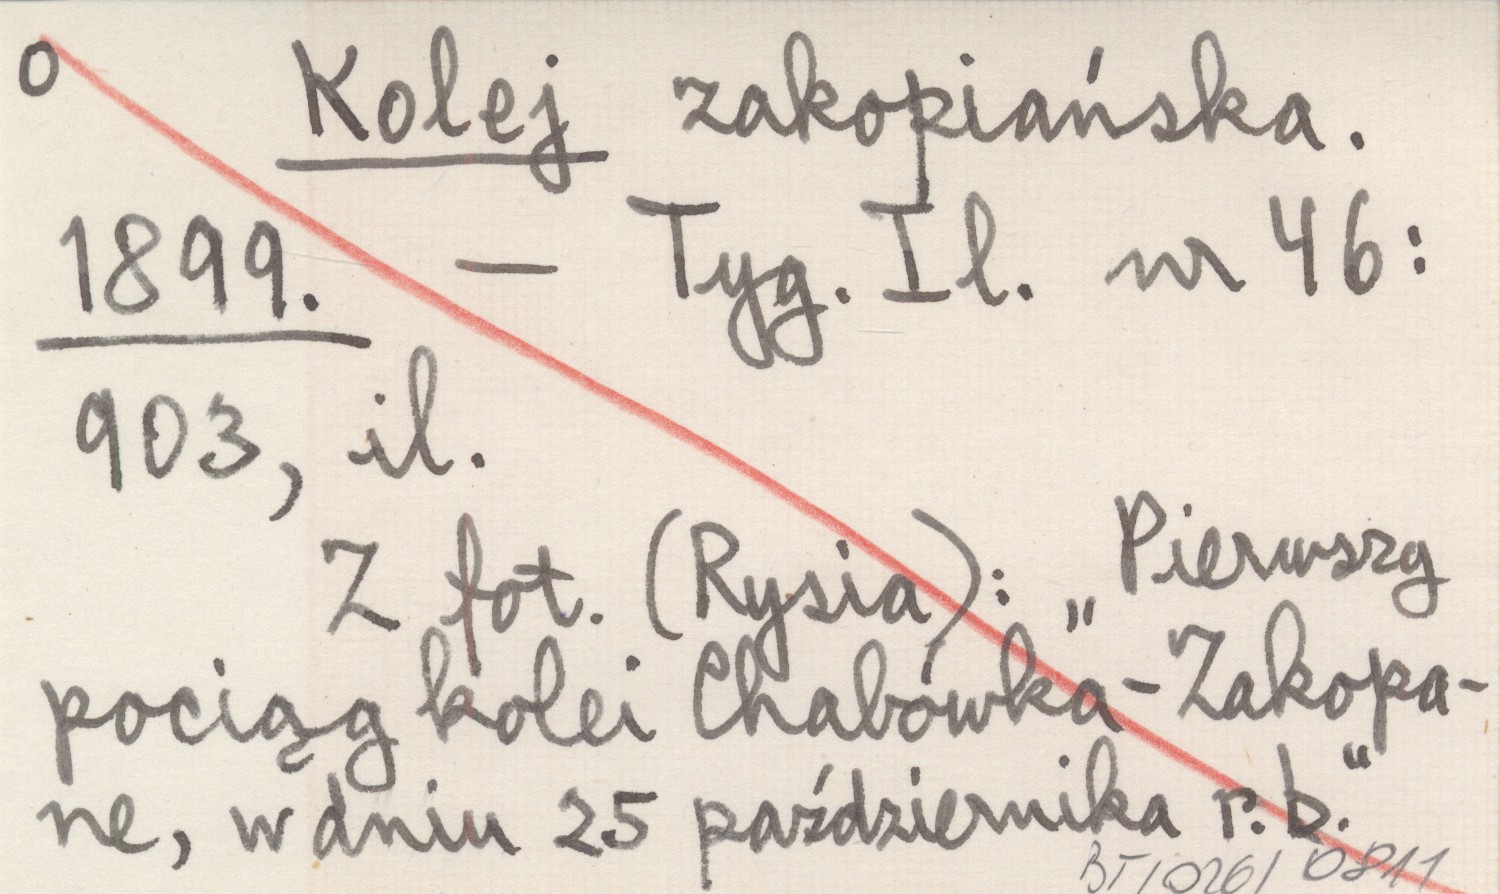 O Kolej zakopiańska.
1899. — Tyg. Il. nr 46:
903, il.
Z fot. (Rysia): „Pierwszy
pociąg kolei Chabówka-Zakopa-
ne, w dniu 25 października r.b."
BT/026/0811